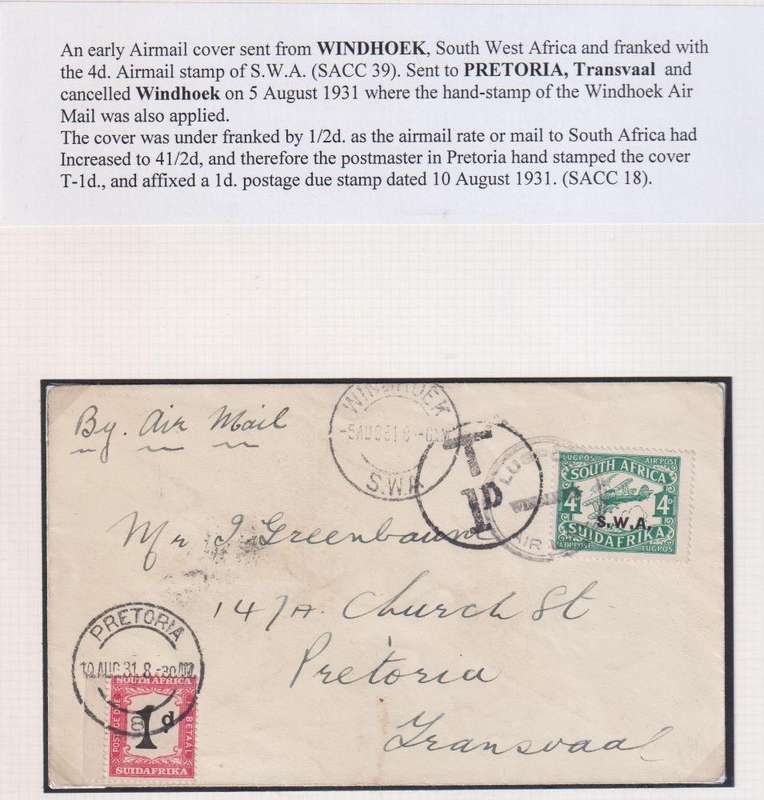 An early Airmail cover sent from WINDHOEK, South West Africa and franked with
the 4d. Airmail stamp of S.W.A. (SACC 39). Sent to PRETORIA, Transvaal and
cancelled Windhoek on 5 August 1931 where the hand-stamp of the Windhoek Air
Mail was also applied.
The cover was under franked by 1/2d. as the airmail rate or mail to South Africa had
Increased to 41/2d, and therefore the postmaster in Pretoria hand stamped the cover
T-1d., and affixed a 1d. postage due stamp dated 10 August 1931. (SACC 18).
By Air Mail
WINDHOEK
-5AUG31 8-
S.W.A
T
1D
LUGPOS
AIR
LUGPOS AIR POST
SOUTH AFRICA
4d 4d
S.W.A.
SUIDAFRIKA
AIR POST LUGPOS
Mr J Greenbaum
147A. Church St.
Pretoria
Transvaal
PRETORIA
10 AUG 31 8-30
8
SOUTH AFRICA
POSTAGE DUE
1d
BETAAL
SUIDAFRIKA